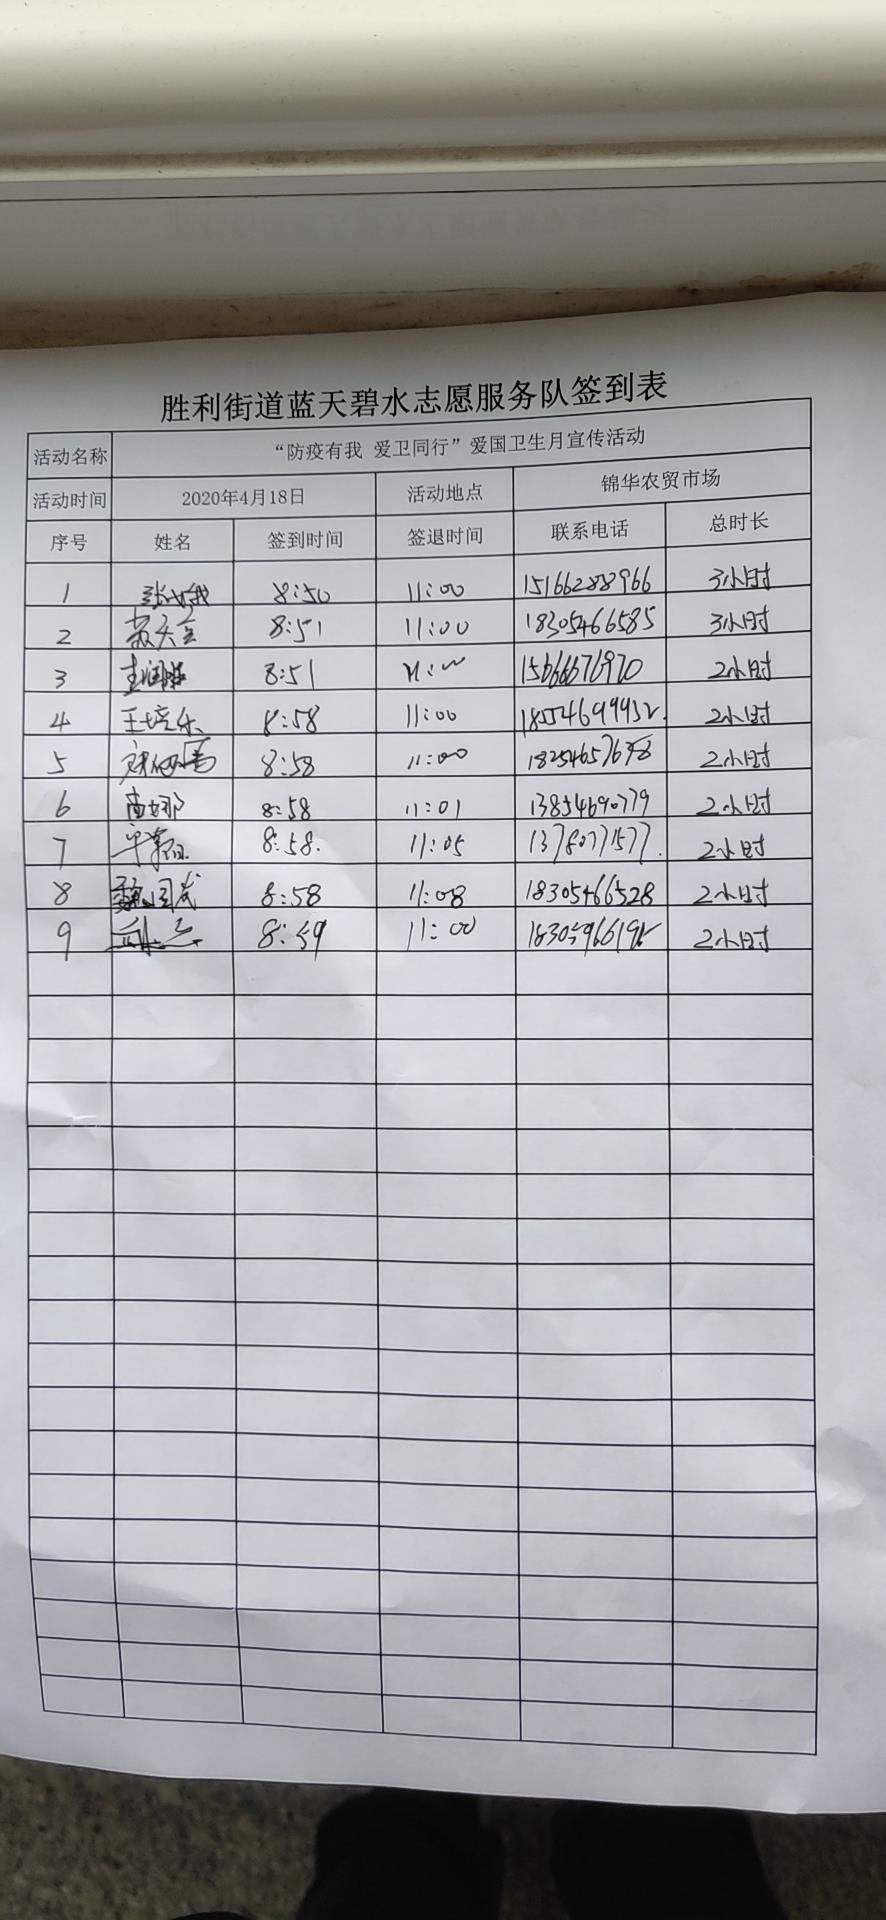 胜利街道蓝天碧水志愿服务队签到表
活动名称 “防疫有我 爱卫同行”爱国卫生月宣传活动
活动时间 2020年4月18日 活动地点 锦华农贸市场
序号 姓名 签到时间 签退时间 联系电话 总时长
1 8:50 11:00 15166288966 3小时
2 8:51 11:00 18305466585 3小时
3 8:51 15666676970 2小时
4 王培乐 8:58 11:00 2小时
5 8:58 11:00 2小时
6 苗娜 8:58 11:01 13854690779 2小时
7 8:58. 11:05 13780771577. 2小时
8 魏国成 8:58 11:08 18305466528 2小时
9 8:59 11:00 2小时